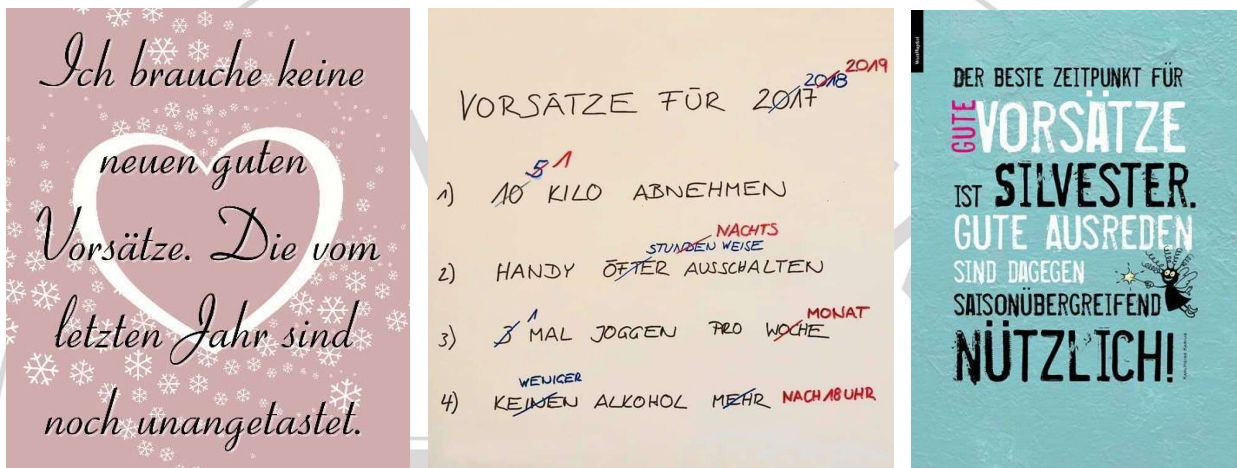 Ich brauche keine
neuen guten
Vorsätze. Die vom
letzten Jahr sind
noch unangetastet.
2019
2018
VORSÄTZE FÜR 2017
5 1
1) 10 KILO ABNEHMEN
NACHTS
STUNDEN WEISE
2) HANDY ÖFTER AUSSCHALTEN
1 MONAT
3) 3 MAL JOGGEN PRO WOCHE
WENIGER
4) KEINEN ALKOHOL MEHR NACH 18 UHR
DER BESTE ZEITPUNKT FÜR
GUTE VORSÄTZE
IST SILVESTER.
GUTE AUSREDEN
SIND DAGEGEN
SAISONÜBERGREIFEND
NÜTZLICH!